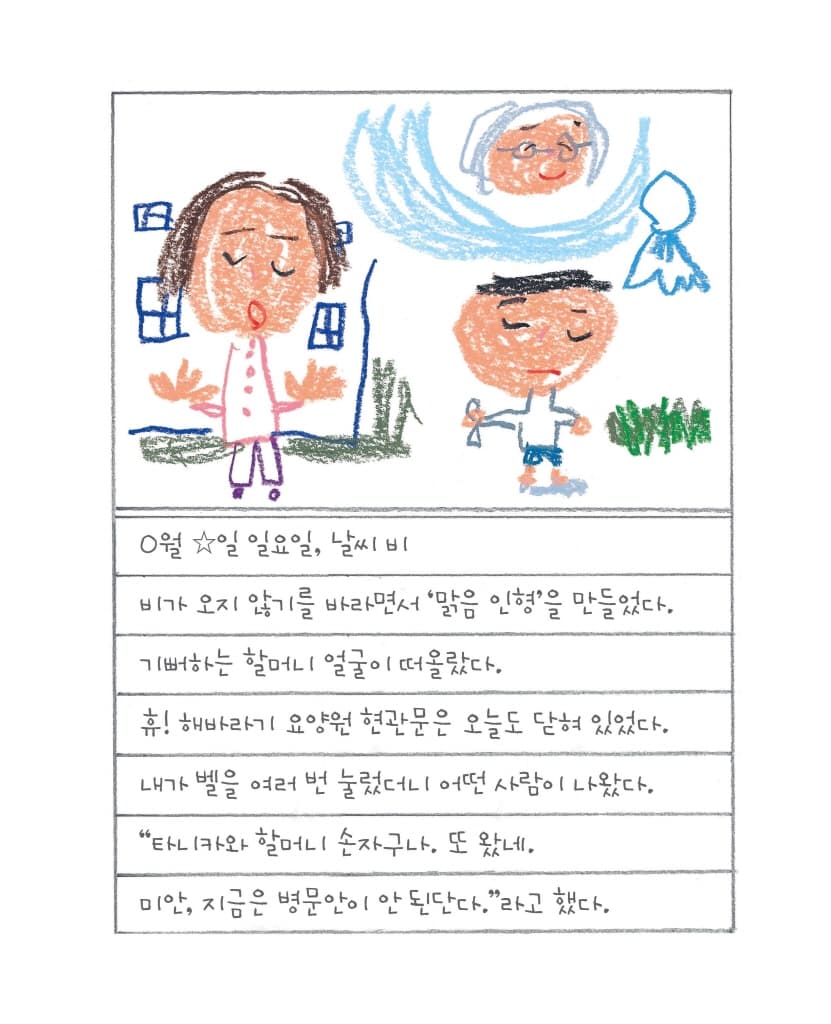 ○월 ☆일 일요일, 날씨 비
비가 오지 않기를 바라면서 ‘맑음 인형’을 만들었다.
기뻐하는 할머니 얼굴이 떠올랐다.
휴! 해바라기 요양원 현관문은 오늘도 닫혀 있었다.
내가 벨을 여러 번 눌렀더니 어떤 사람이 나왔다.
“타니카와 할머니 손자구나. 또 왔네.
미안, 지금은 병문안이 안 된단다.”라고 했다.